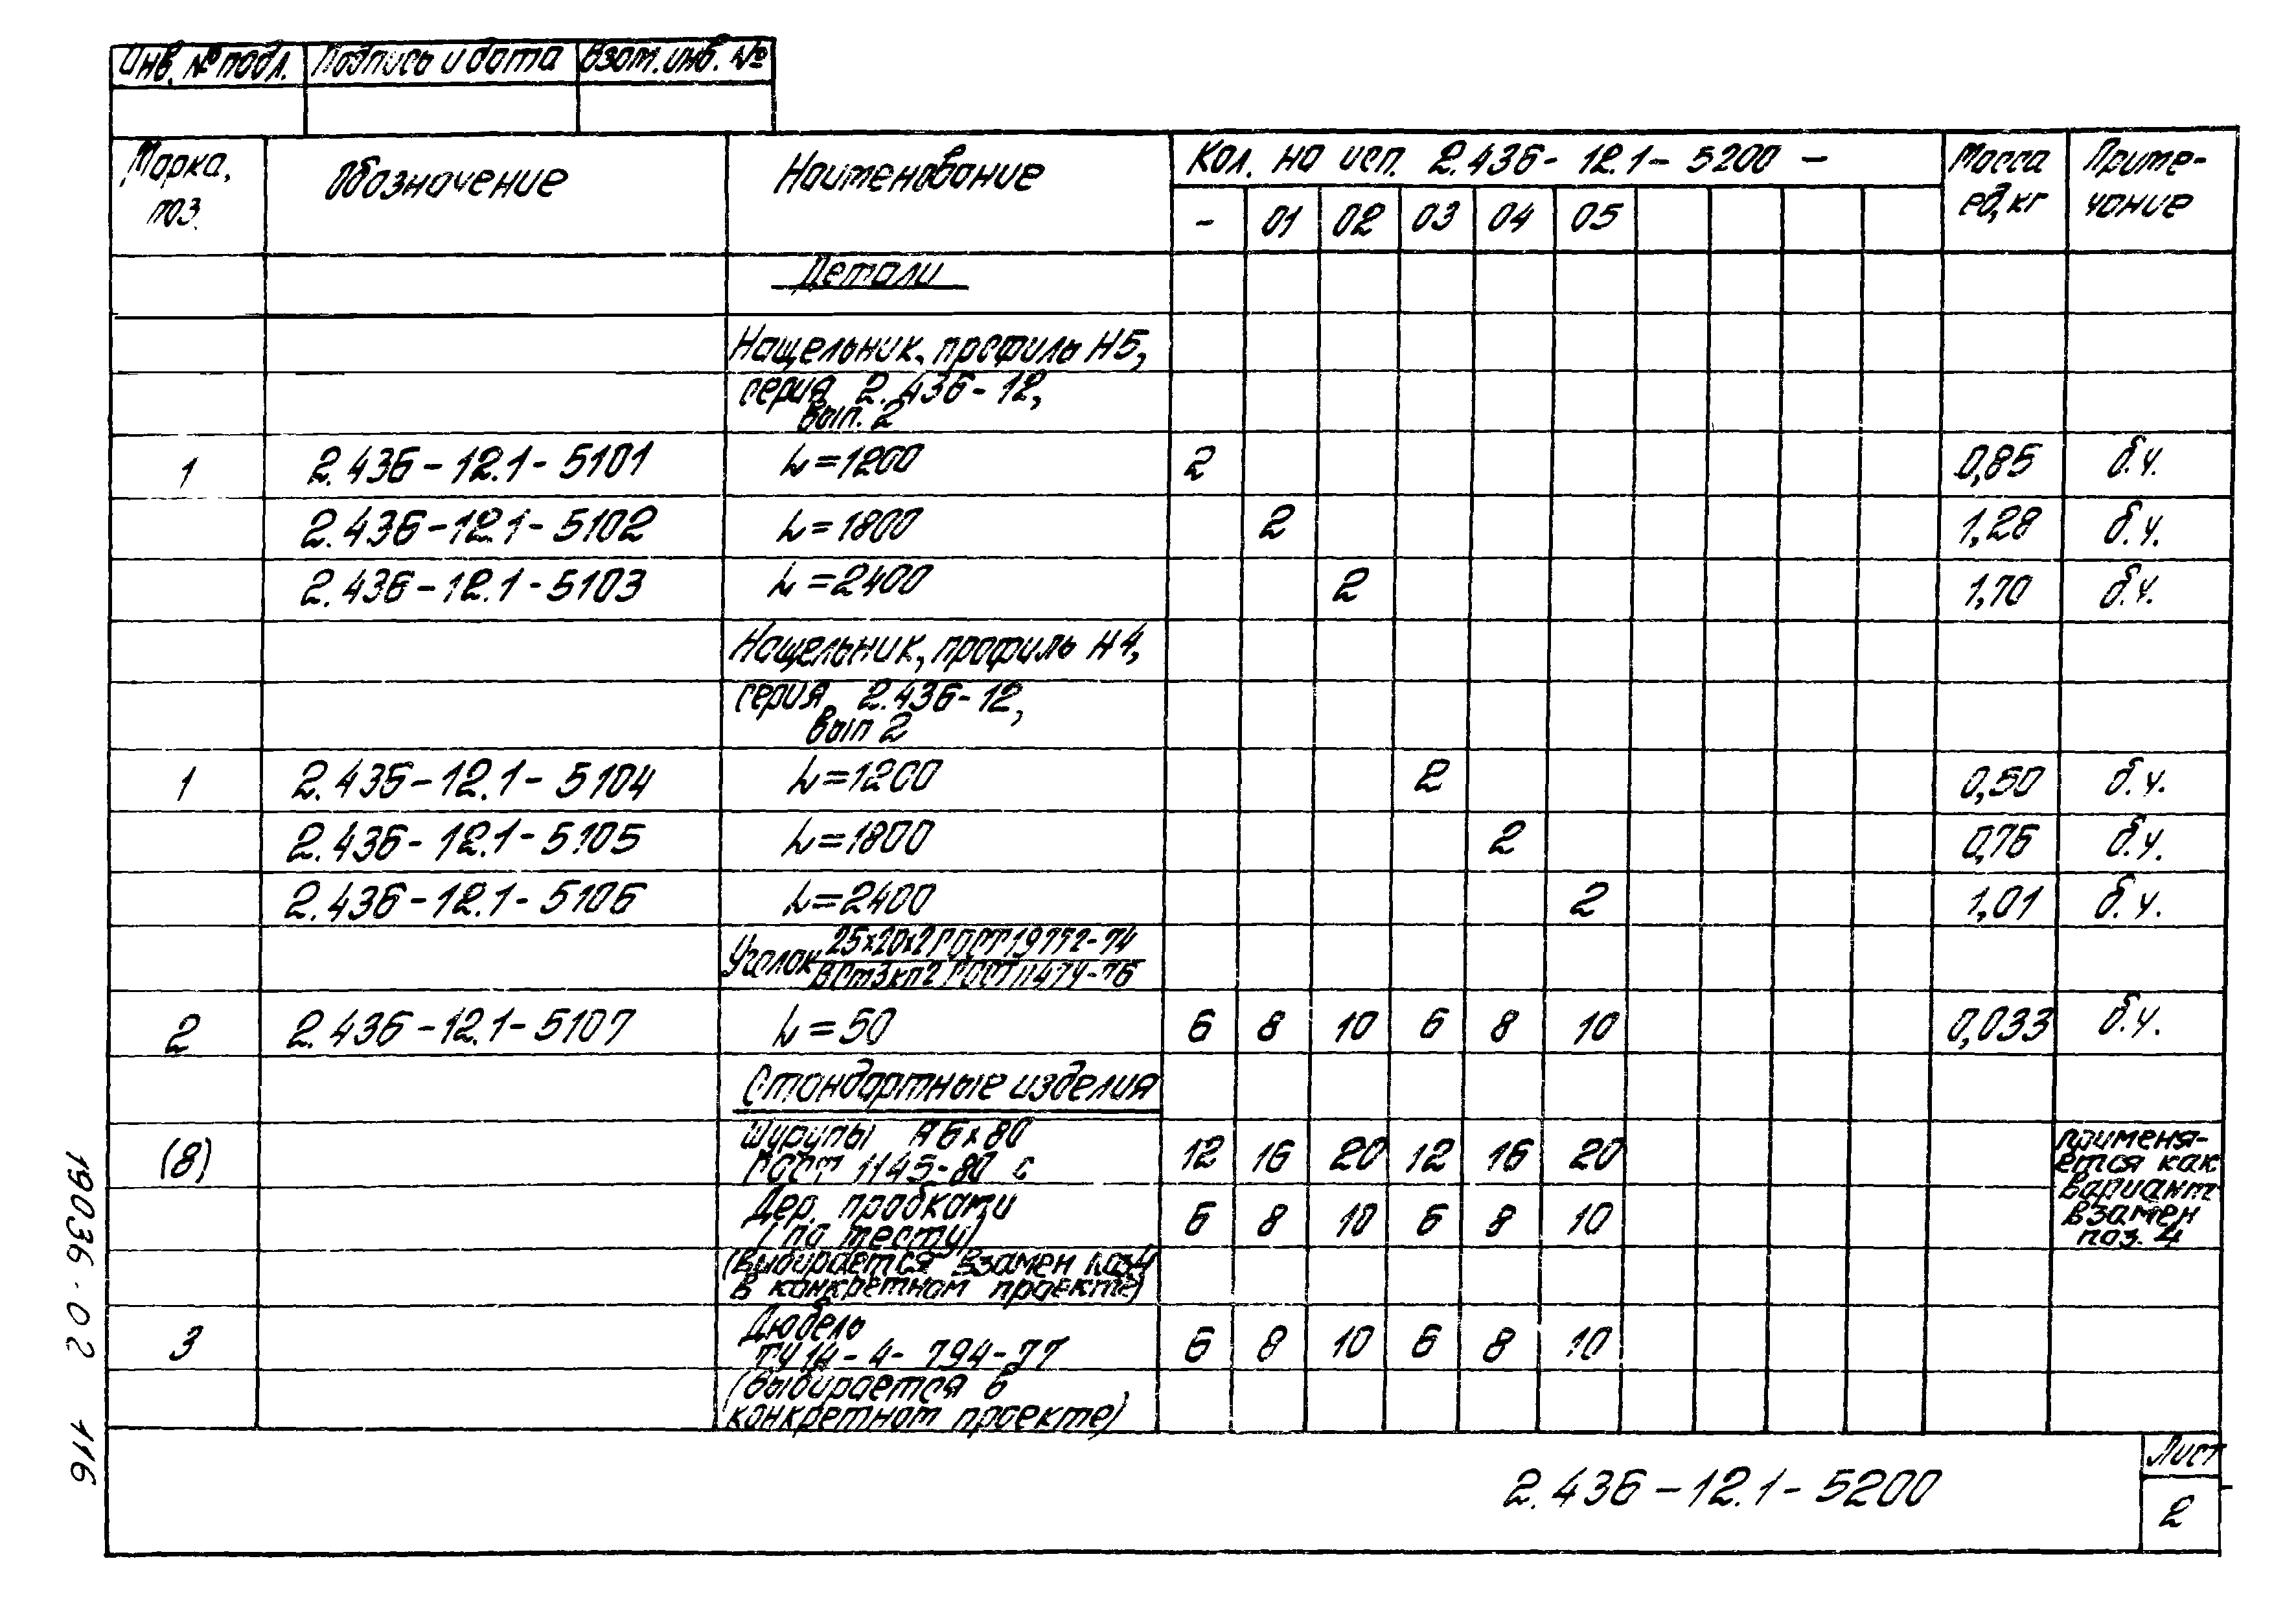 Инв. № подл. Подпись и дата Взам. инв. №
Марка, поз. Обозначение Наименование Кол. на исп. 2.436-12.1-5200- Масса ед, кг Приме-чание
- 01 02 03 04 05
Детали
Нащельник, профиль Н5,
серия 2.436-12,
вып. 2
1 2.436-12.1-5101 L=1200 2 0,85 б.ч.
2.436-12.1-5102 L=1800 2 1,28 б.ч.
2.436-12.1-5103 L=2400 2 1,70 б.ч.
Нащельник, профиль Н4,
серия 2.436-12,
вып 2
1 2.436-12.1-5104 L=1200 2 0,50 б.ч.
2.436-12.1-5105 L=1800 2 0,76 б.ч.
2.436-12.1-5106 L=2400 2 1,01 б.ч.
Уголок 25х20х2 ГОСТ 19772-74
ВСт3кп2 ГОСТ 11474-76
2 2.436-12.1-5107 L=50 6 8 10 6 8 10 0,033 б.ч.
Стандартные изделия
(8) Шурупы А6х80
ГОСТ 1145-80 с 12 16 20 12 16 20
Дер. пробками
(по тесту) 6 8 10 6 8 10
применя-
ется как
вариант
взамен
поз. 4
(выбирается взамен поз4
в конкретном проекте)
3 Дюбель
ТУ14-4-794-77 6 8 10 6 8 10
(выбирается в
конкретном проекте)
2.436-12.1-5200
Лист
2
19036-02 116